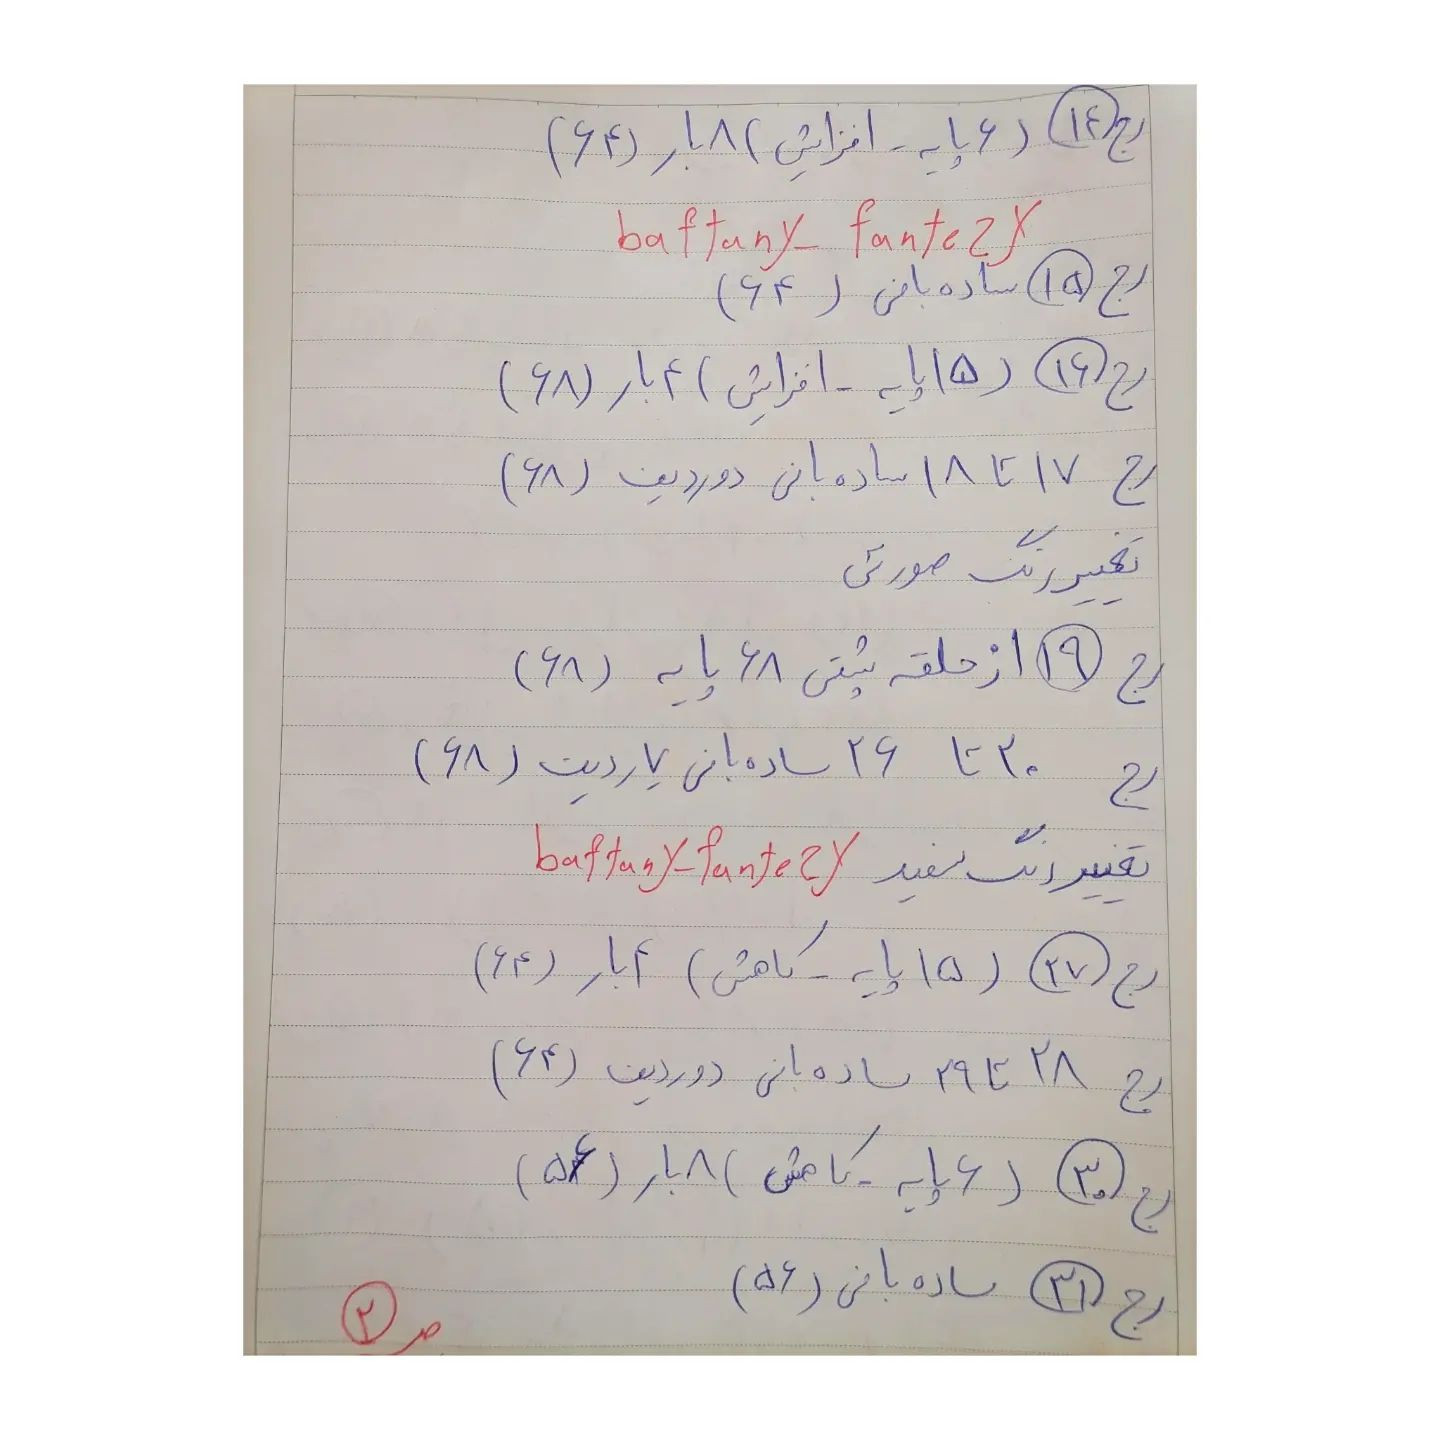 رج ۱۴ (۶ پایه - افزایش) ۸ بار (۶۴)
baftany_fantezy
رج ۱۵ ساده بافی (۶۴)
رج ۱۶ (۱۵ پایه - افزایش) ۴ بار (۶۸)
رج ۱۷ تا ۱۸ ساده بافی دوردیف (۶۸)
تغییر رنگ صورتی
رج ۱۹ از حلقه پشتی ۶۸ پایه (۶۸)
رج ۲۰ تا ۲۶ ساده بافی ۷ ردیف (۶۸)
تغییر رنگ سفید baftany_fantezy
رج ۲۷ (۱۵ پایه - کاهش) ۴ بار (۶۴)
رج ۲۸ تا ۲۹ ساده بافی دوردیف (۶۴)
رج ۳۰ (۶ پایه - کاهش) ۸ بار (۵۶)
رج ۳۱ ساده بافی (۵۶)
ص ۲